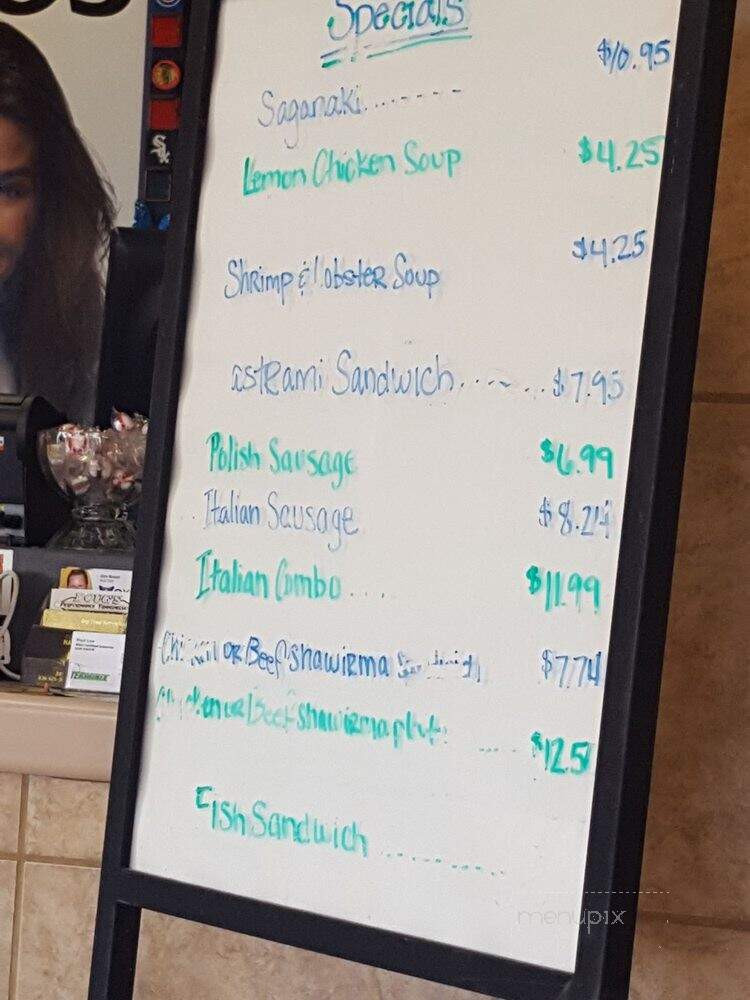 Specials
Saganaki......... $10.95
Lemon Chicken Soup $4.25
Shrimp & lobster Soup $4.25
astrami Sandwich........ $7.95
Polish Sausage $6.99
Italian Sausage
Italian Combo .... $11.99
Chicken or Beef shawirma $7.74
Chicken or Beef shawirma ..... $12.5
Fish Sandwich ..........
menupix